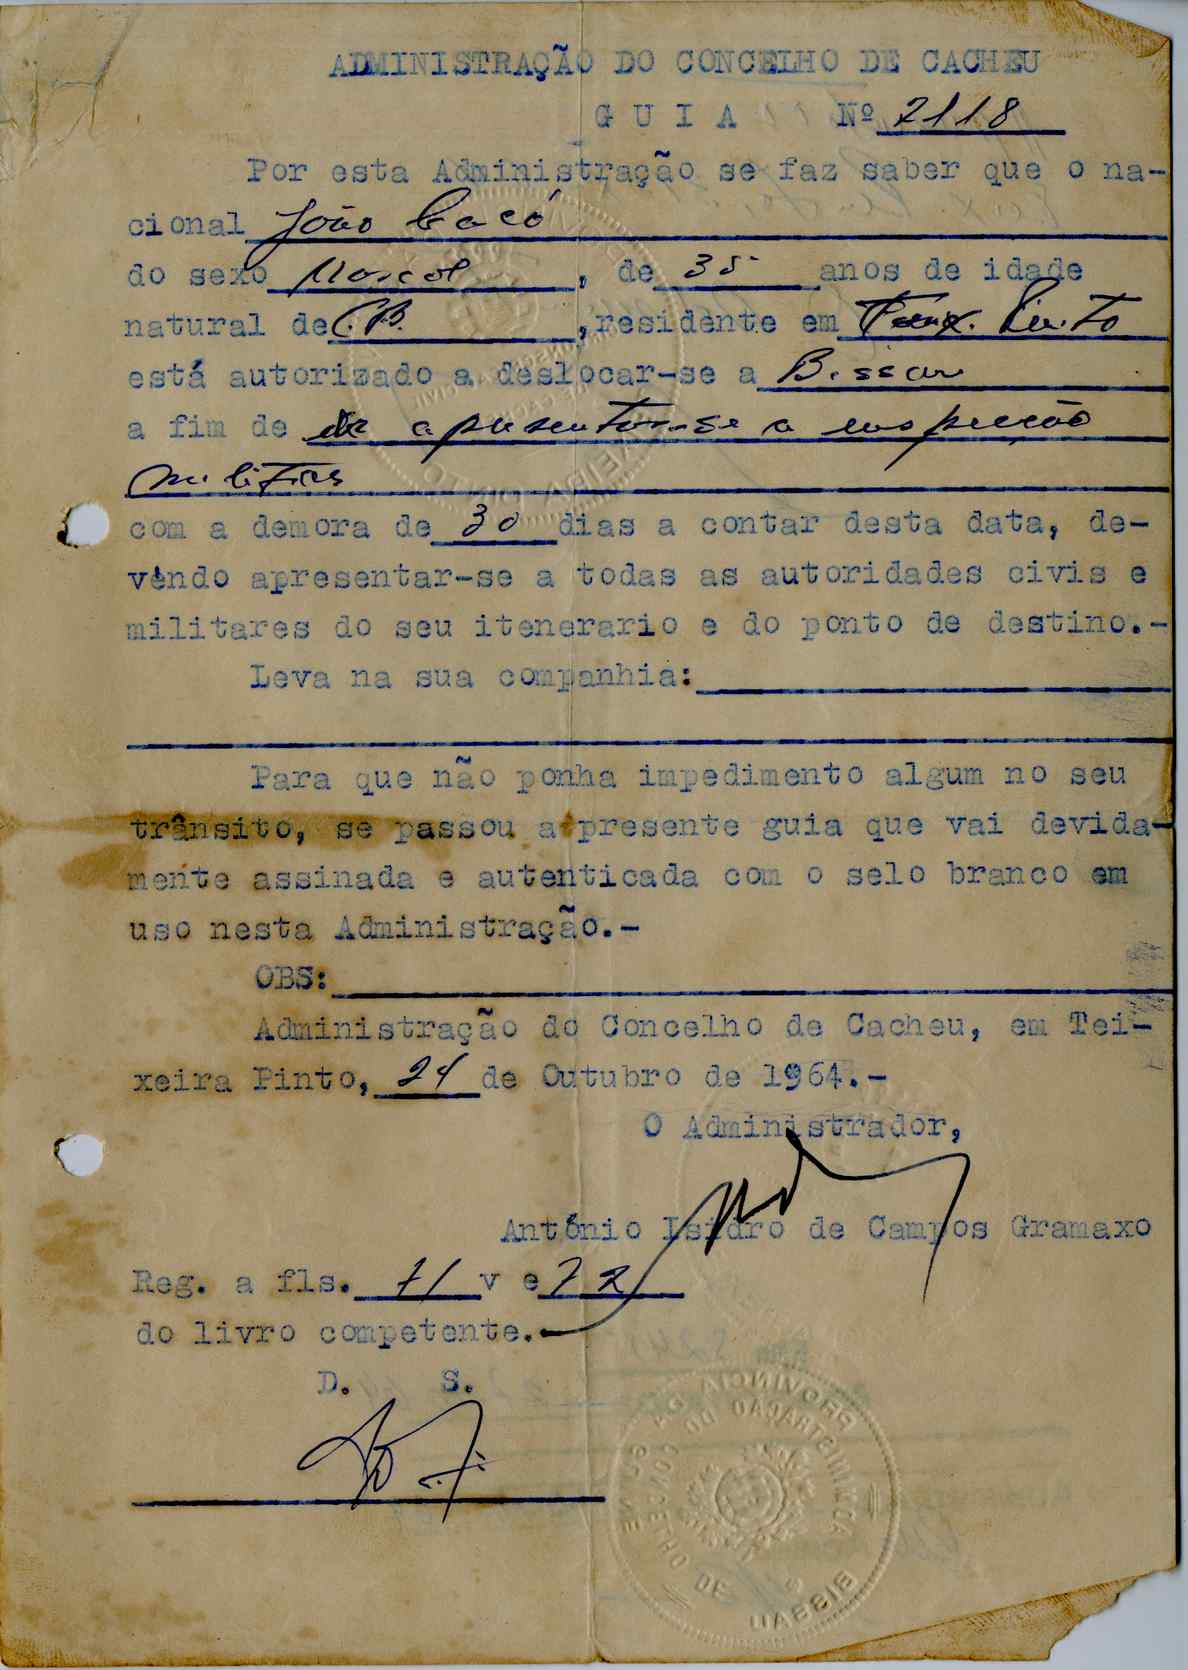 ADMINISTRAÇÃO DO CONCELHO DE CACHEU
G U I A Nº 2118
Por esta Administração se faz saber que o na-
cional João Cacó
do sexo Mascol, de 35 anos de idade
natural de C.B., residente em Teix. Pinto
está autorizado a deslocar-se a Bissau
a fim de de apresentar-se a inspecção
militar
com a demora de 30 dias a contar desta data, de-
vendo apresentar-se a todas as autoridades civis e
militares do seu itenerario e do ponto de destino.-
Leva na sua companhia:
Para que não ponha impedimento algum no seu
trânsito, se passou a presente guia que vai devida-
mente assinada e autenticada com o selo branco em
uso nesta Administração.-
OBS:
Administração do Concelho de Cacheu, em Tei-
xeira Pinto, 24 de Outubro de 1964.-
O Administrador,
António Isidro de Campos Gramaxo
Reg. a fls. 71 v e 72
do livro competente.-
D. S.
PROVINCIA DA GUINE
ADMINISTRAÇÃO DO CONCELHO DE
BISSAU